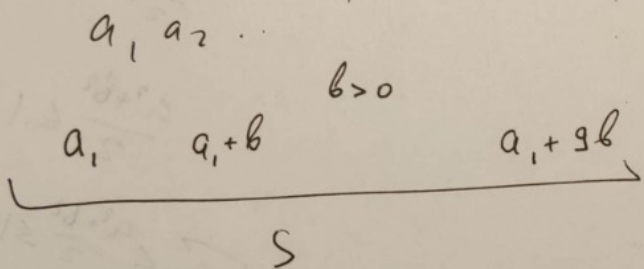 a₁ a₂ ..
b>0
a₁ a₁+b a₁+9b
S